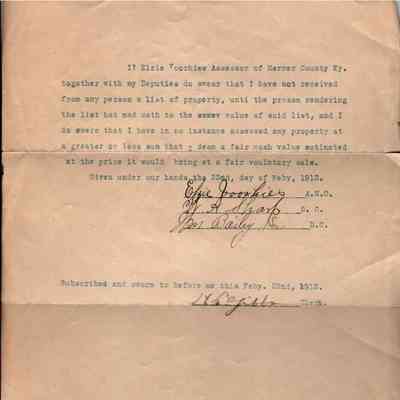 I, Elzie Voorhies Assessor of Mercer County Ky.
together with my Deputies do swear that I have not received
from any person a list of property, until the proson rendering
the list had mad oath to the value of said list, and I
do swera that I have in no instance assessed any property at
a greater or less sum that I deem a fair cash value estimated
at the price it would bring at a fair voulutary sale.
Given under our hands the 22nd, day of Feby, 1912.
Elzie Voorhies A.M.C.
W. H. Sharp D. C.
Bailey D.C.
Subscribed and sworn to before me this Feby. 22nd, 1912.
Clerk.